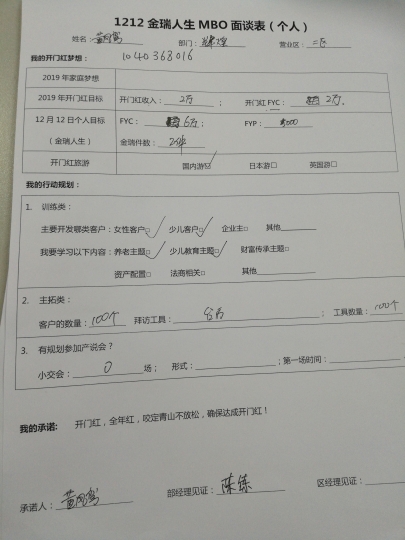 1212 金瑞人生 MBO 面谈表（个人）
姓名： 部门： 营业区：二区
我的开门红梦想： 1040368016
2019 年家庭梦想
2019 年开门红目标 开门红收入：2万； 开门红 FYC：2万.
12 月 12 日个人目标 FYC：6万； FYP：
（金瑞人生） 金瑞件数：2件
开门红旅游 国内游☑ 日本游□ 英国游□
我的行动规划：
1. 训练类：
主要开发哪类客户：女性客户☑ 少儿客户☑ 企业主□ 其他
我要学习以下内容：养老主题☑ 少儿教育主题☑ 财富传承主题□
资产配置□ 法商相关□ 其他
2. 主拓类：
客户的数量：100个 拜访工具： ；工具数量：100个
3. 有规划参加产说会？
小交会：0 场； 形式： ；第一场时间：
我的承诺： 开门红，全年红，咬定青山不放松，确保达成开门红！
承诺人： 部经理见证：陈练 区经理见证：